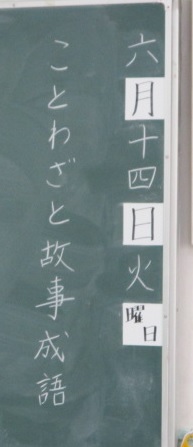 六月十四日火曜日
ことわざと故事成語